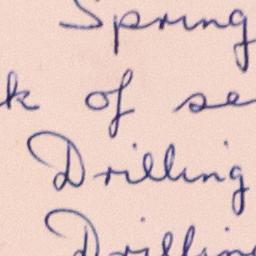 Spring
k of se
Drilling
Drilling